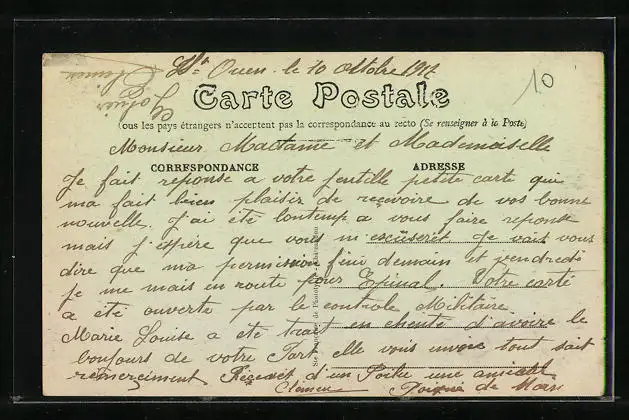 St Ouen le 10 Octobre 1917
10
Carte Postale
Tous les pays étrangers n'acceptent pas la correspondance au recto (Se renseigner à la Poste)
Monsieur Madame et Mademoiselle
CORRESPONDANCE
ADRESSE
Je fait reponse a votre gentille petite carte qui
ma fait bien plaisir de reçevoire de vos bonne
nouvelle. J'ai éte lontemp a vous faire reponse
mais j'espère que vous m'excuseret Je vait vous
dire que ma permission fini demain et vendredi
je me mais en route pour Epinal. Votre carte
a éte ouverte par le controle Militaire.
Marie Louise a éte trait en chenté d'avoire le
bonjours de votre Part elle vous unvoie tout sait
remerciment Reçevet d'un Poilu une amicale
Poigné de Main
Clémen